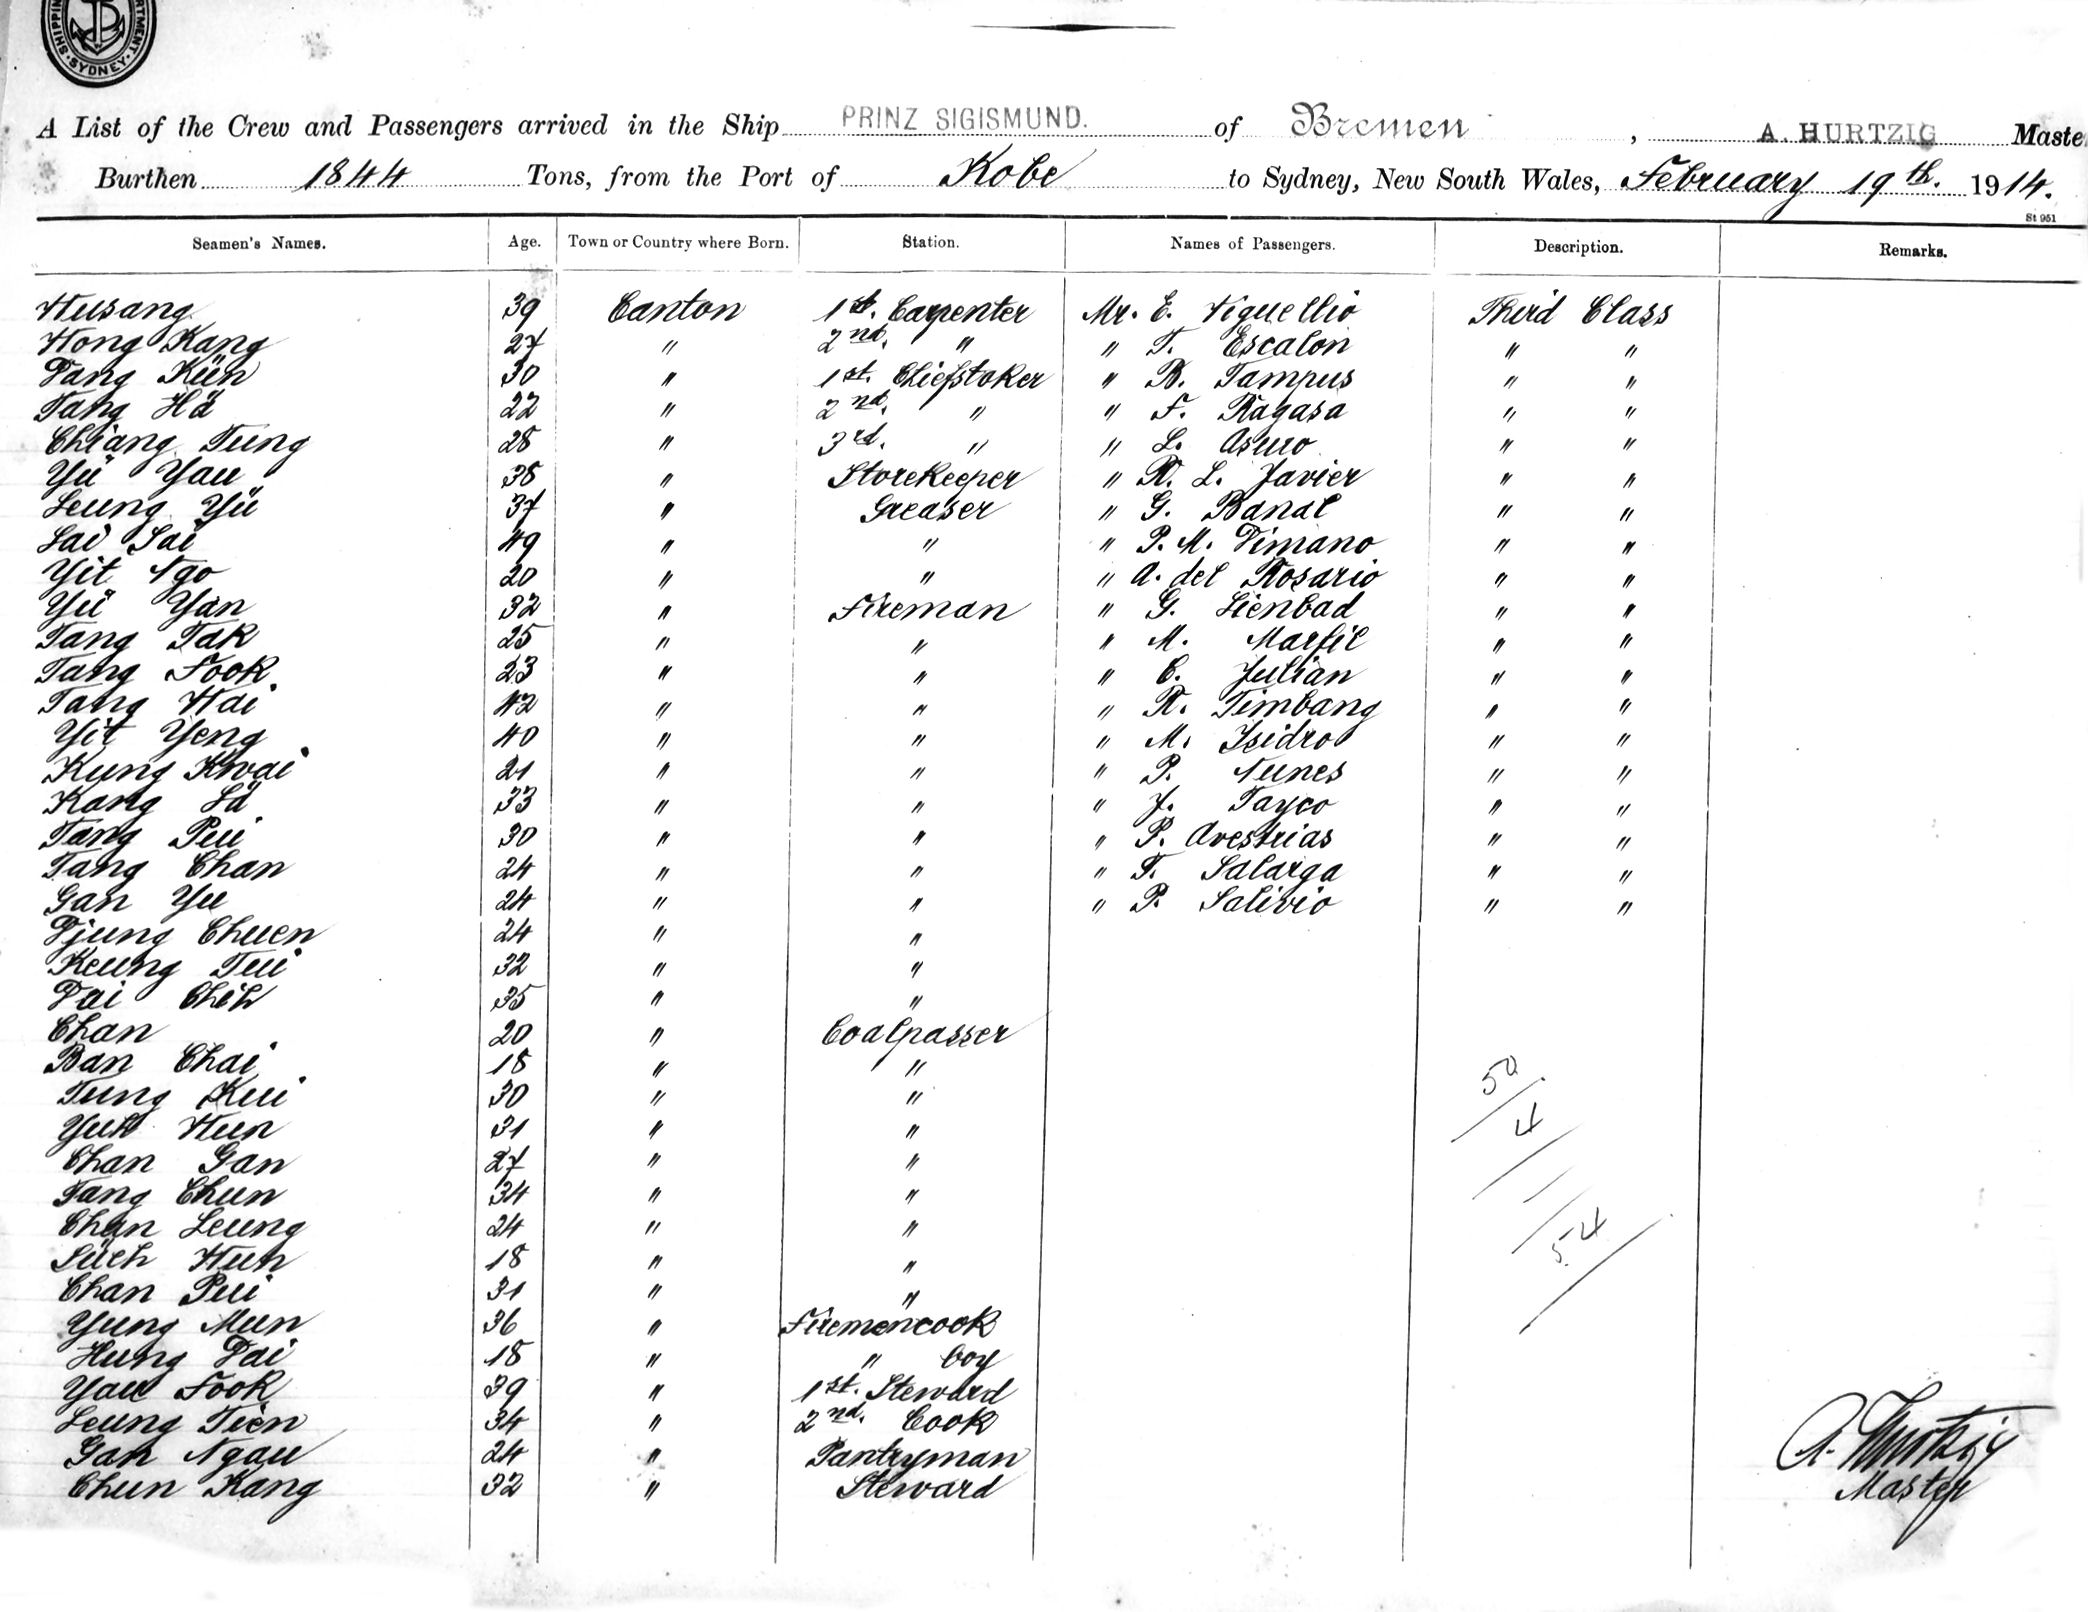 SHIPPING DEPARTMENT SYDNEY
A List of the Crew and Passengers arrived in the Ship PRINZ SIGISMUND. of Bremen , A. HURTZIG Maste
Burthen 1844 Tons, from the Port of Kobe to Sydney, New South Wales, February 19th. 1914.
St 951
Seamen's Names. Age. Town or Country where Born. Station. Names of Passengers. Description. Remarks.
Husang 39 Canton 1st. Carpenter Mr. E. Viguellio Third Class
Hong Kang 27 " 2nd. " " T. Escalon " "
Dang Kün 30 " 1st. Chiefstoker " B. Tampus " "
Tang Hä 22 " 2nd. " " F. Ragasa " "
Chiang Tung 28 " 3rd. " " L. Asuro " "
Yü Yau 38 " Storekeeper " R. L. Javier " "
Leung Yü 37 " Greaser " G. Banal " "
Lai Sai 49 " " " P. M. Dimano " "
Yit Ngo 20 " " " A. del Rosario " "
Yü Yan 32 " Fireman " G. Lienbad " "
Tang Tak 25 " " " M. Marfil " "
Tang Fook 23 " " " C. Julian " "
Tang Hai 42 " " " R. Timbang " "
Yit Yeng 40 " " " M. Isidro " "
Kung Kwai 21 " " " P. Nunes " "
Kang Lä 33 " " " J. Tayco " "
Tang Pui 30 " " " P. Avestrias " "
Tang Chan 24 " " " T. Salarga " "
Gan Yu 24 " " " P. Salivio " "
Djung Chuen 24 " "
Keung Tui 32 " "
Dai Chih 35 " "
Chan 20 " Coalpasser
Ban Chai 18 " "
Tung Kui 30 " "
Yuk Hun 31 " "
Chan Gan 27 " "
Tang Chun 34 " "
Chan Leung 24 " "
Süch Hun 18 " "
Chan Pui 31 " "
Yung Mun 36 " Firemencook
Hung Dai 18 " " boy
Yau Fook 39 " 1st. Steward
Leung Tien 34 " 2nd. Cook
Gan Ngau 24 " Pantryman
Chun Kang 32 " Steward
50
4
54
A. Hurtzig
Master